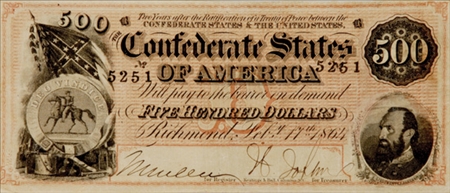 500
Two Years after the Ratification of a Treaty of Peace between the
CONFEDERATE STATES & THE UNITED STATES,
THE
Confederate States
500
No 5251 5251
OF AMERICA
Will pay to the bearer on demand
FIVE HUNDRED DOLLARS
Richmond, Feb. 17th 1864
for Register
for Treasurer